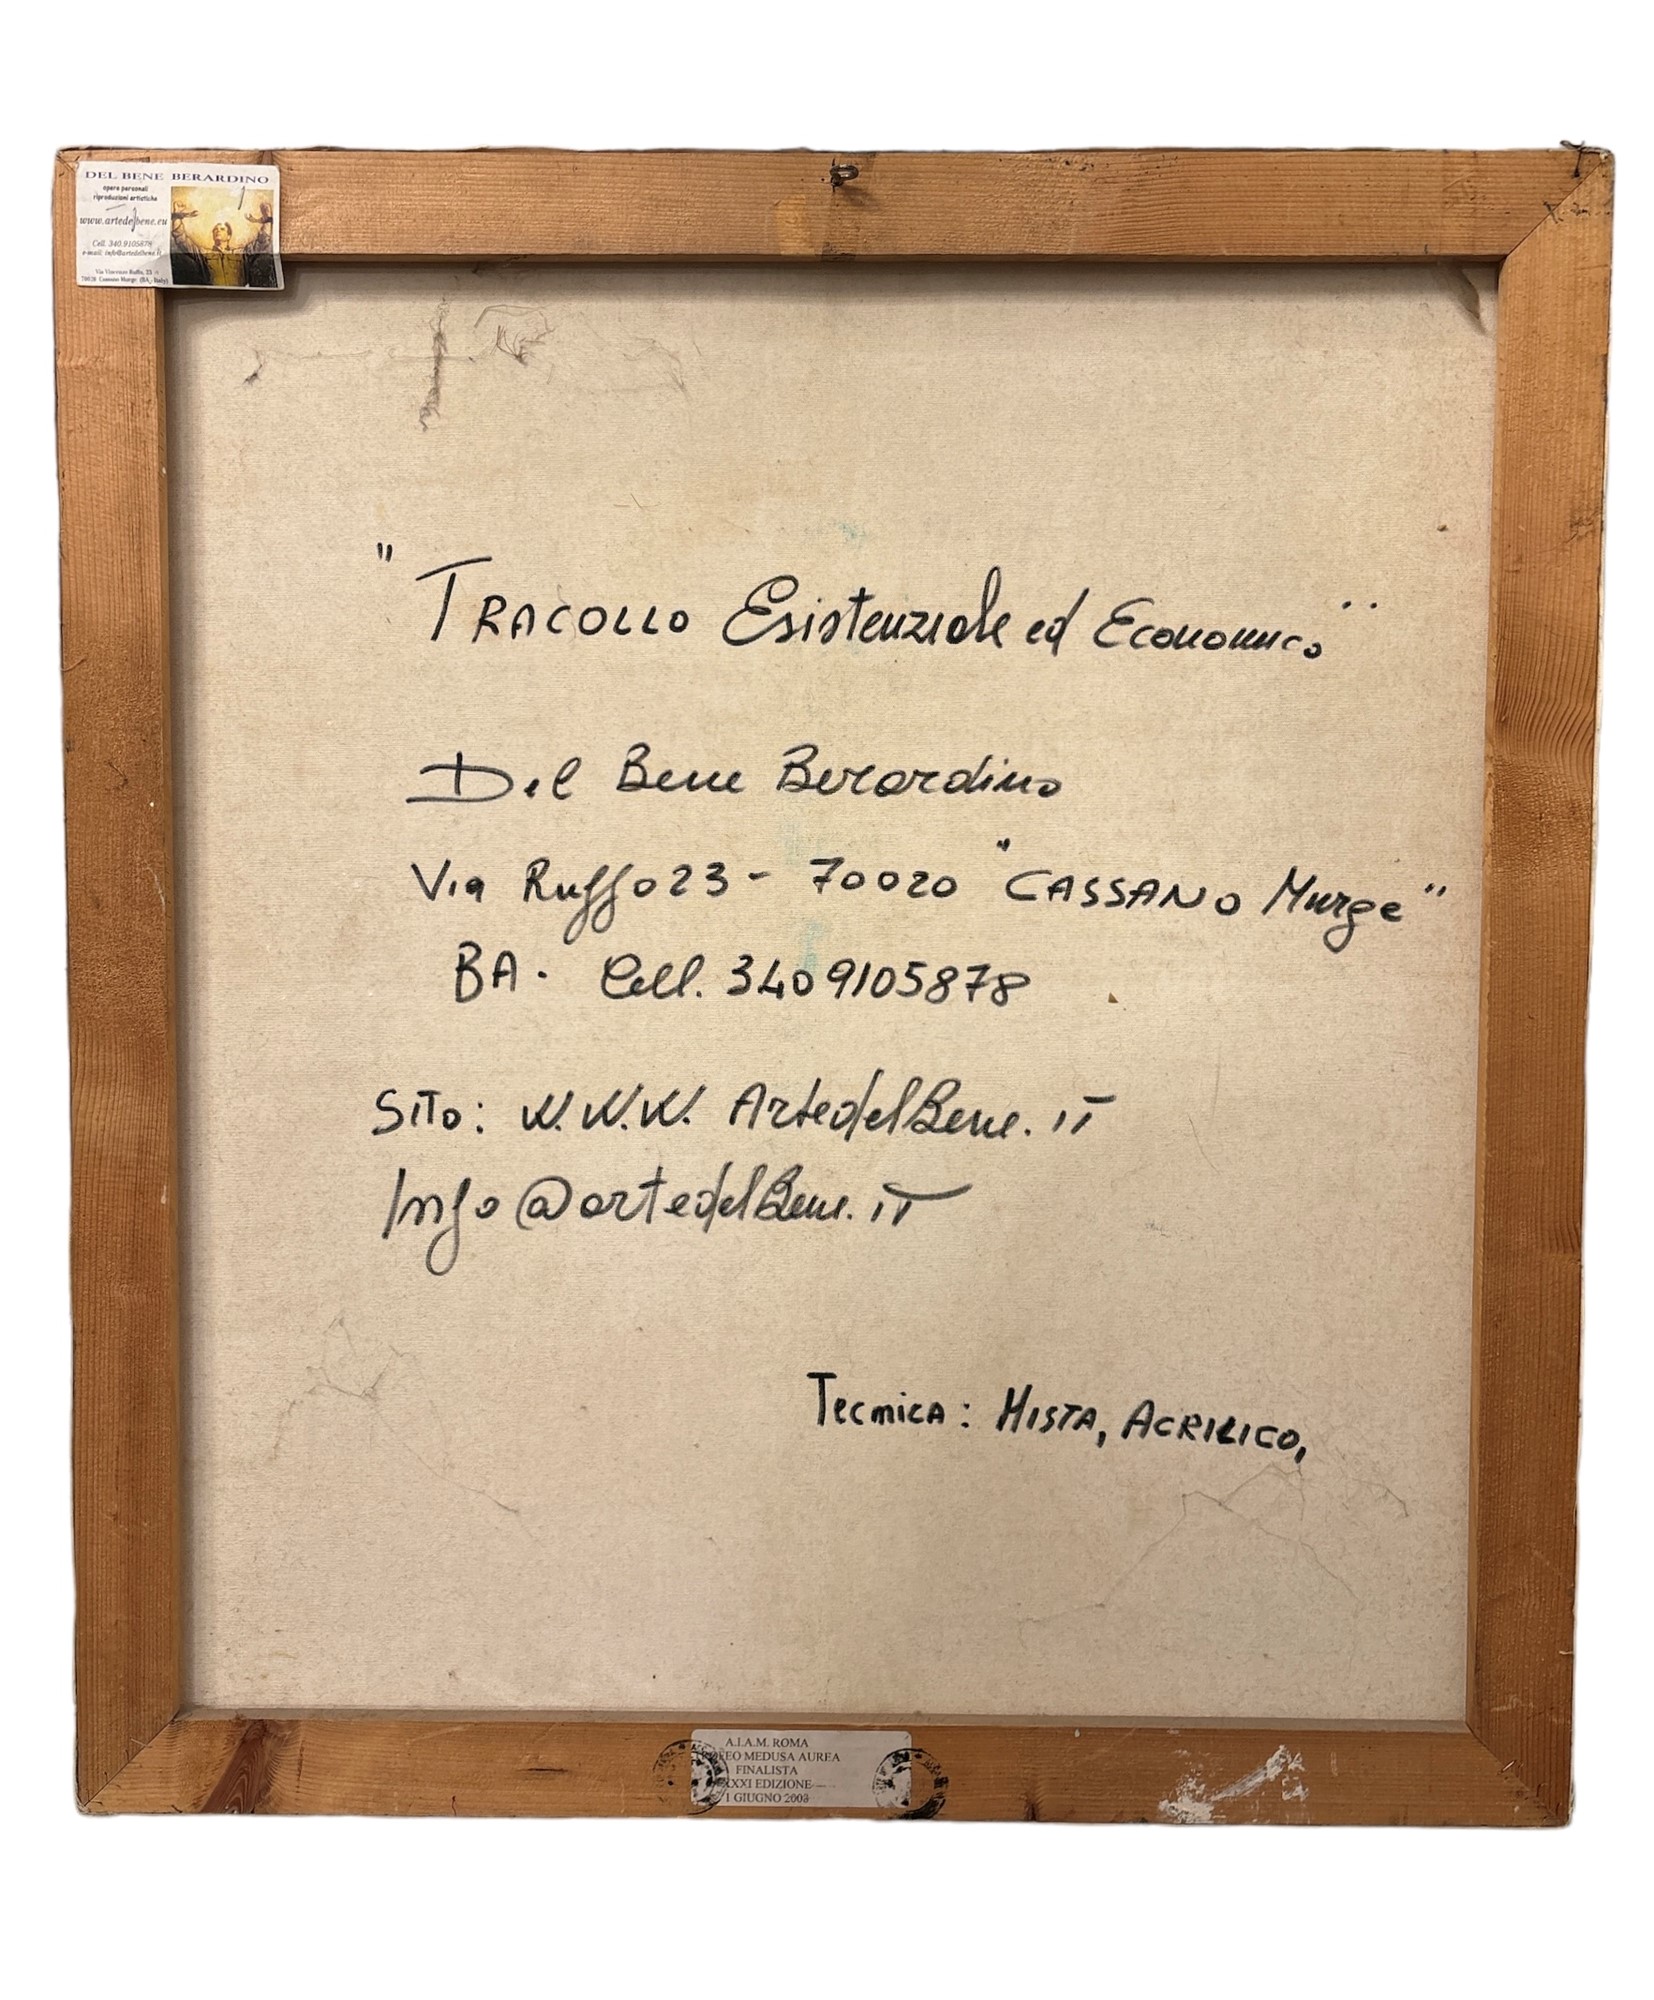 DEL BENE BERARDINO
opere personali
riproduzioni artistiche
www.artedelbene.eu
Cell. 340.9105878
e-mail: info@artedelbene.it
Via Vincenzo Ruffo, 23
70020 Cassano Murge (BA, Italy)
" TRACOLLO Esistenziale ed Economico "
Del Bene Berardino
Via Ruffo 23 - 70020 "CASSANO Murge"
BA. Cell. 3409105878
SITO: W.W.W. ArtedelBene.iT
Info@artedelBene.iT
Tecnica: MISTA, ACRILICO,
A.I.A.M. ROMA
MEDUSA AUREA
FINALISTA
XXXI EDIZIONE
1 GIUGNO